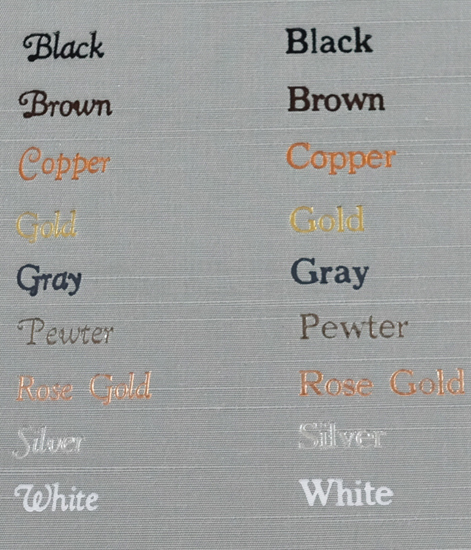 Black Black
Brown Brown
Copper Copper
Gold Gold
Gray Gray
Pewter Pewter
Rose Gold Rose Gold
Silver Silver
White White